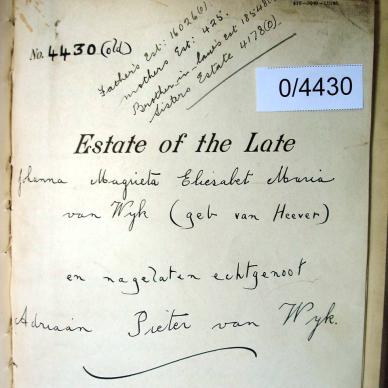 No. 4430 (old)
Father's Est: 16026(0).
Mothers Est: 425.
Brother-in-law's est
Sisters Estate 4178(0).
0/4430
Estate of the Late
Johanna Magrieta Eliesabet Maria
van Wyk (geb van Heever)
en nagelaten echtgenoot
Adriaan Pieter van Wyk.